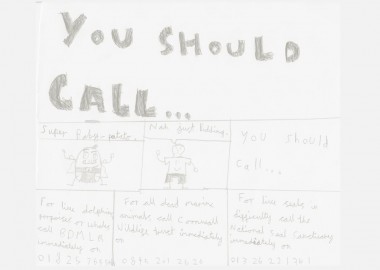 YOU SHOULD
CALL...
Super Potato.
Not just kidding.
you should
call...
For live dolphins
porpoises or whales
call BDMLR
immediately on
01825
For all dead marine
animals call Cornwall
Wildlife Trust immediately
on
0345 201 26 26
For live seals &
call the
National Seal Sanctuary
immediately on
01326 221 361